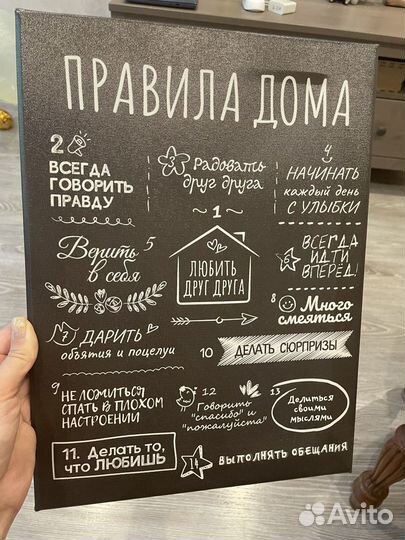 ПРАВИЛА ДОМА
2
ВСЕГДА
ГОВОРИТЬ
ПРАВДУ
3 Радовать
друг друга
4
НАЧИНАТЬ
каждый день
С УЛЫБКИ
~ 1 ~
ЛЮБИТЬ
ДРУГ ДРУГА
Верить 5
в себя
6 ВСЕГДА
ИДТИ
ВПЕРЁД!
7 ДАРИТЬ
объятия и поцелуи
8 Много
смеяться
10 ДЕЛАТЬ СЮРПРИЗЫ
9
НЕ ЛОЖИТЬСЯ
СПАТЬ В ПЛОХОМ
НАСТРОЕНИИ
12
Говорить
"спасибо" и
"пожалуйста"
13
Делиться
своими
мыслями
11. Делать то,
что ЛЮБИШЬ
14 ВЫПОЛНЯТЬ ОБЕЩАНИЯ
Avito